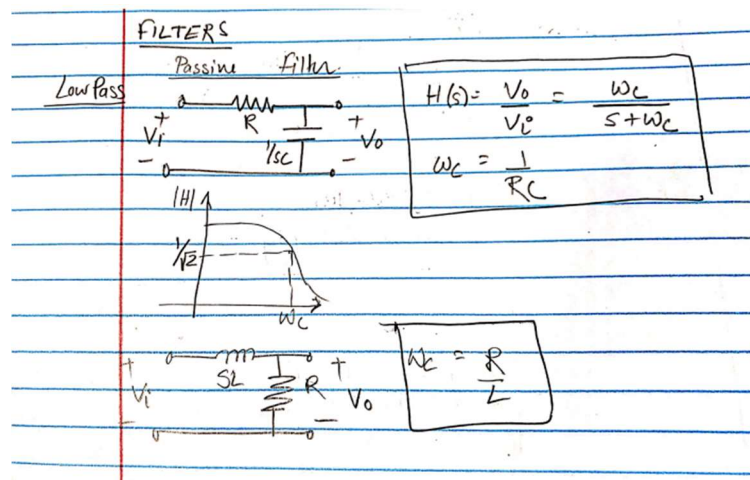 FILTERS
Passive Filter
Low Pass
+ R + 
Vi 1/SC Vo
- -
H(s) = Vo/Vi = ωc/(s+ωc)
ωc = 1/RC
|H|
1/√2
ωc
+ SL R +
Vi Vo
- -
ωc = R/L